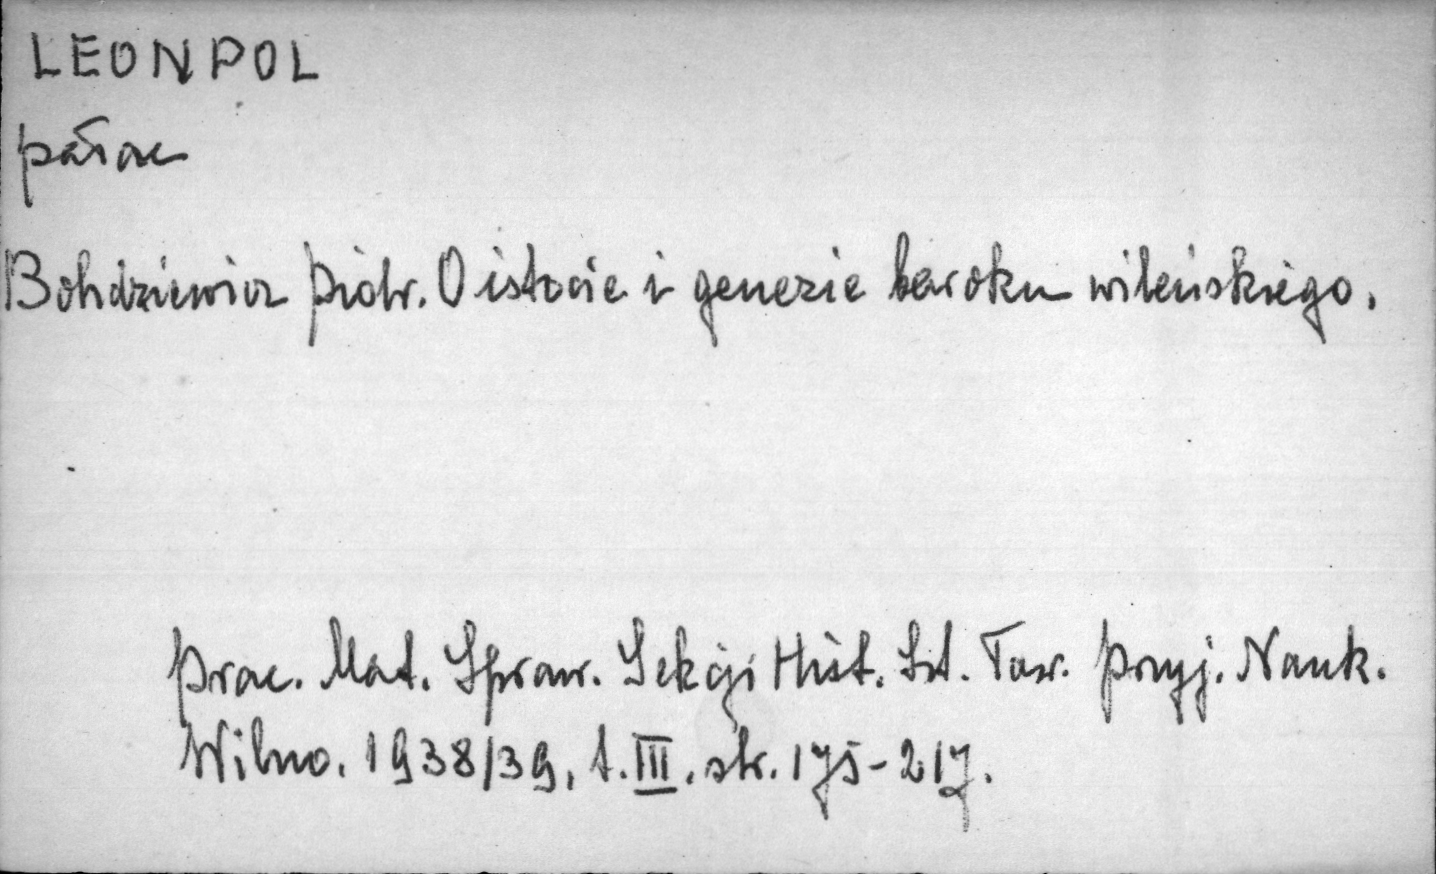 LEONPOL
pałac
Bohdziewicz Piotr. O istocie i genezie baroku wileńskiego.
Prac. Mat. Spraw. Sekcji Hist. Szt. Tow. Przyj. Nauk.
Wilno. 1938/39, t. III. str. 175-217.